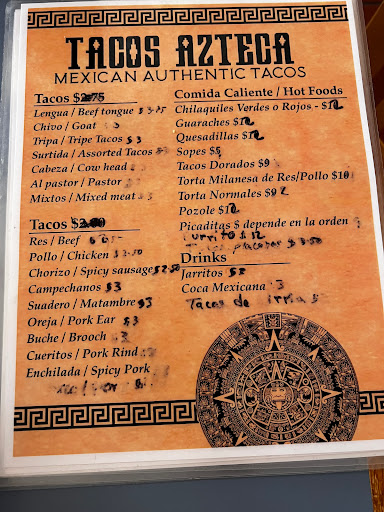 TACOS AZTECA
MEXICAN AUTHENTIC TACOS
Tacos $2.75
Lengua / Beef tongue $3.75
Chivo / Goat 3
Tripa / Tripe Tacos $3
Surtida / Assorted Tacos $3
Cabeza / Cow head 3
Al pastor / Pastor 3
Mixtos / Mixed meat 3
Tacos $2.00
Res / Beef
Pollo / Chicken $2.50
Chorizo / Spicy sausage $2.50
Campechanos $3
Suadero / Matambre $3
Oreja / Pork Ear $3
Buche / Brooch 3
Cueritos / Pork Rind
Enchilada / Spicy Pork
Comida Caliente / Hot Foods
Chilaquiles Verdes o Rojos - $12
Guaraches $12
Quesadillas $12
Sopes $5
Tacos Dorados $9
Torta Milanesa de Res/Pollo $10
Torta Normales $
Pozole $12
Picaditas $ depende en la orden
Burritos $12
$3.50
Drinks
Jarritos $2
Coca Mexicana 3
Tacos de